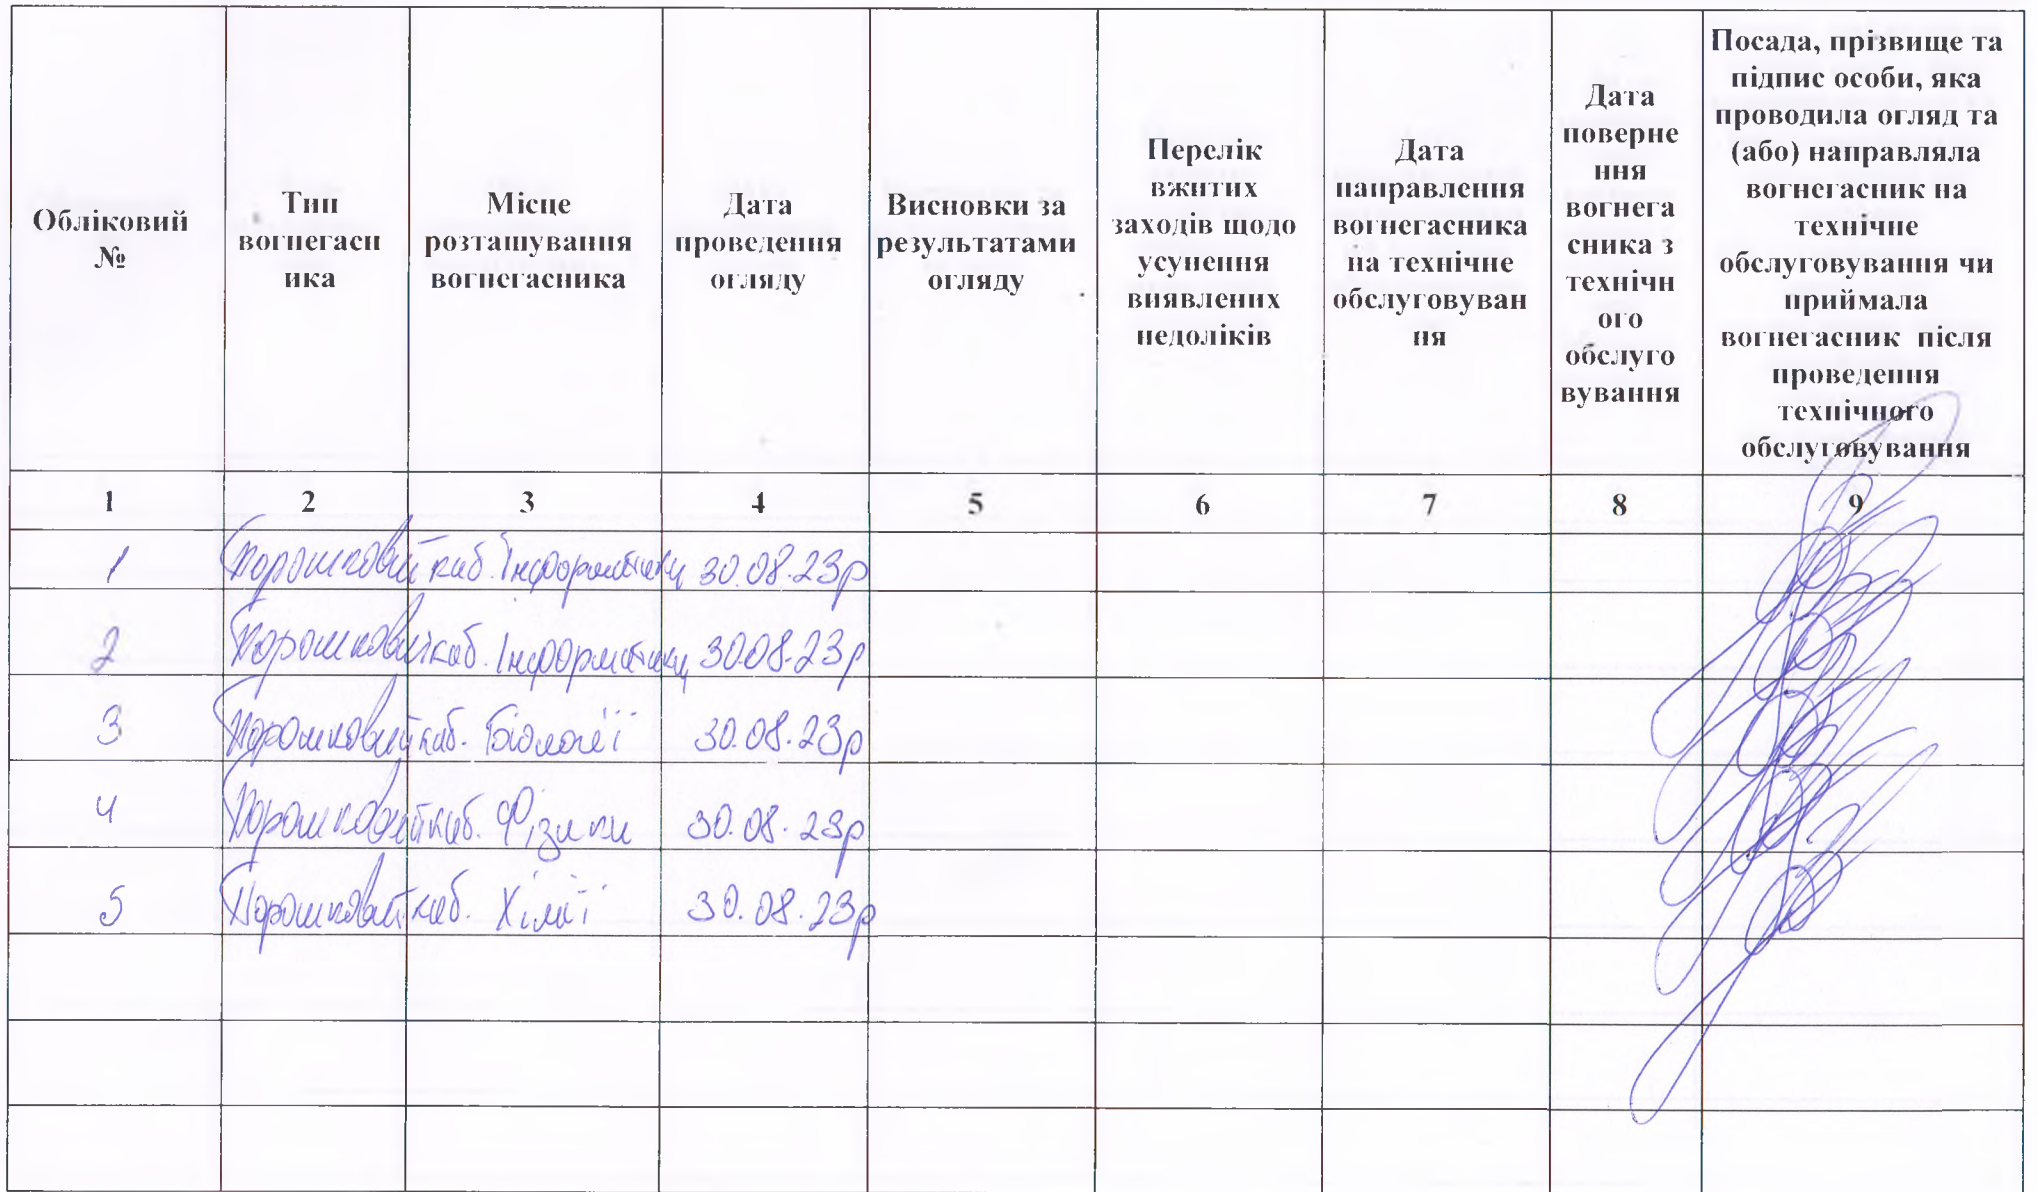 Обліковий
№
Тип
вогнегасн
ика
Місце
розташування
вогнегасника
Дата
проведення
огляду
Висновки за
результатами
огляду
Перелік
вжитих
заходів щодо
усунення
виявлених
недоліків
Дата
направлення
вогнегасника
на технічне
обслуговуван
ня
Дата
поверне
ння
вогнега
сника з
технічн
ого
обслуго
вування
Посада, прізвище та
підпис особи, яка
проводила огляд та
(або) направляла
вогнегасник на
технічне
обслуговування чи
приймала
вогнегасник після
проведення
технічного
обслуговування
1 2 3 4 5 6 7 8 9
1 Порошковий каб. Інформатики 30.08.23р
2 Порошковий каб. Інформатики 30.08.23р
3 Порошковий каб. Біології 30.08.23р
4 Порошковий каб. Фізики 30.08.23р
5 Порошковий каб. Хімії 30.08.23р